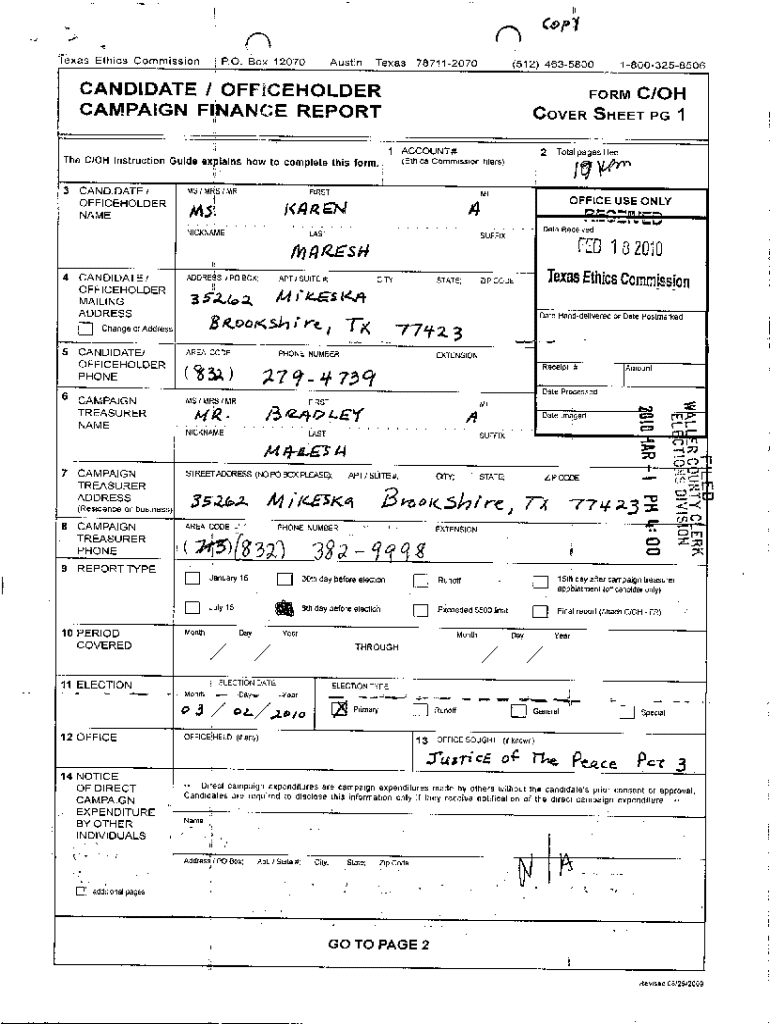 COPY
Texas Ethics Commission P.O. Box 12070 Austin Texas 78711-2070 (512) 463-5800 1-800-325-8506
CANDIDATE / OFFICEHOLDER
CAMPAIGN FINANCE REPORT
FORM C/OH
COVER SHEET PG 1
The C/OH Instruction Guide explains how to complete this form.
1 ACCOUNT #
(Ethics Commission filers)
2 Total pages filed
3 CANDIDATE /
OFFICEHOLDER
NAME
MS / MRS / MR FIRST MI
MS. KAREN A
NICKNAME LAST SUFFIX
MARESH
OFFICE USE ONLY
RECEIVED
Date Received
FEB 18 2010
Texas Ethics Commission
4 CANDIDATE /
OFFICEHOLDER
MAILING
ADDRESS
Change of Address
ADDRESS / PO BOX; APT / SUITE #; CITY STATE; ZIP CODE
35262 MIKESKA
BROOKSHIRE, TX 77423
Date Hand-delivered or Date Postmarked
5 CANDIDATE/
OFFICEHOLDER
PHONE
AREA CODE PHONE NUMBER EXTENSION
(832) 279-4739
Receipt # Amount
Date Processed
Date Imaged
6 CAMPAIGN
TREASURER
NAME
MS / MRS / MR FIRST MI
MR. BRADLEY A
NICKNAME LAST SUFFIX
MARESH
FILED
2010 MAR -1 PM 4:00
WALLER COUNTY CLERK
ELECTIONS DIVISION
7 CAMPAIGN
TREASURER
ADDRESS
(Residence or business)
STREET ADDRESS (NO PO BOX PLEASE); APT / SUITE #; CITY; STATE; ZIP CODE
35262 MIKESKA Brookshire, TX 77423
8 CAMPAIGN
TREASURER
PHONE
AREA CODE PHONE NUMBER EXTENSION
(832) 382-9998
9 REPORT TYPE
January 15 30th day before election Runoff 15th day after campaign treasurer
appointment (officeholder only)
July 15 8th day before election Exceeded $500 limit Final report (Attach C/OH - FR)
10 PERIOD
COVERED
Month Day Year THROUGH Month Day Year
/ / / /
11 ELECTION
ELECTION DATE
Month Day Year
03 / 02 / 2010
ELECTION TYPE
X Primary Runoff General Special
12 OFFICE
OFFICE HELD (if any)
13 OFFICE SOUGHT (if known)
JUSTICE OF The Peace Pct 3
14 NOTICE
OF DIRECT
CAMPAIGN
EXPENDITURE
BY OTHER
INDIVIDUALS
Direct campaign expenditures are campaign expenditures made by others without the candidate's prior consent or approval.
Candidates are required to disclose this information only if they receive notification of the direct campaign expenditure.
Name
Address / PO Box; Apt. / Suite #; City; State; Zip Code
N/A
additional pages
GO TO PAGE 2
Revised 08/25/2009